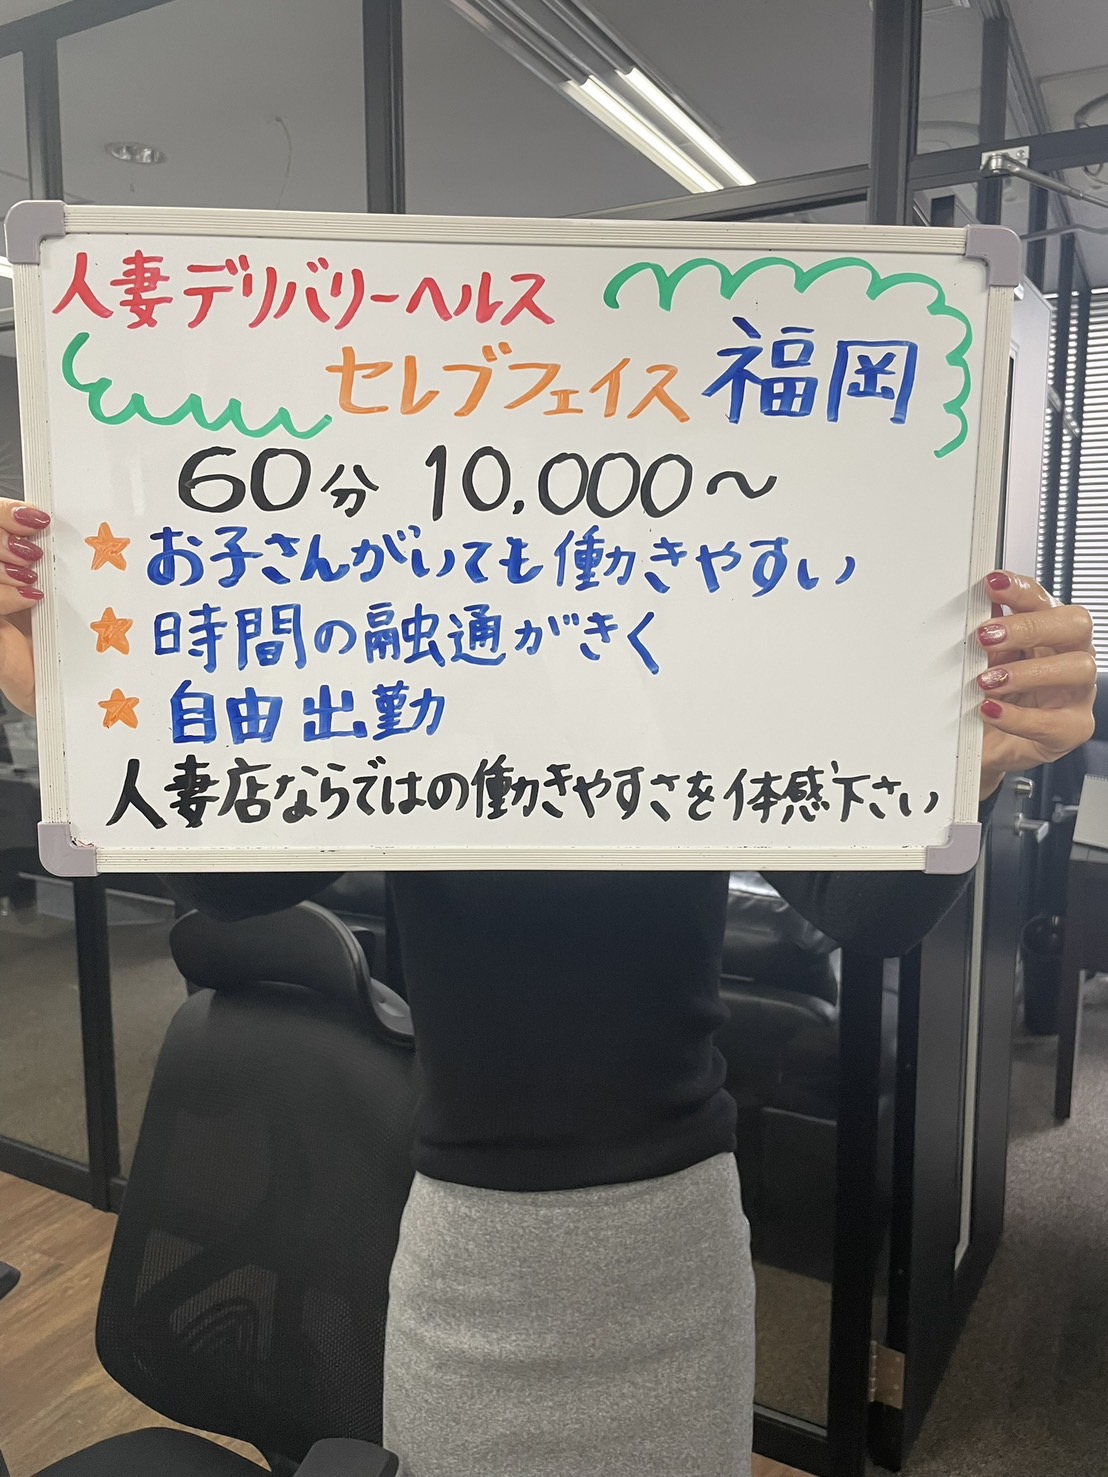 人妻デリバリーヘルス
セレブフェイス 福岡
60分 10,000〜
★お子さんがいても働きやすい
★時間の融通がきく
★自由出勤
人妻店ならではの働きやすさを体感下さい